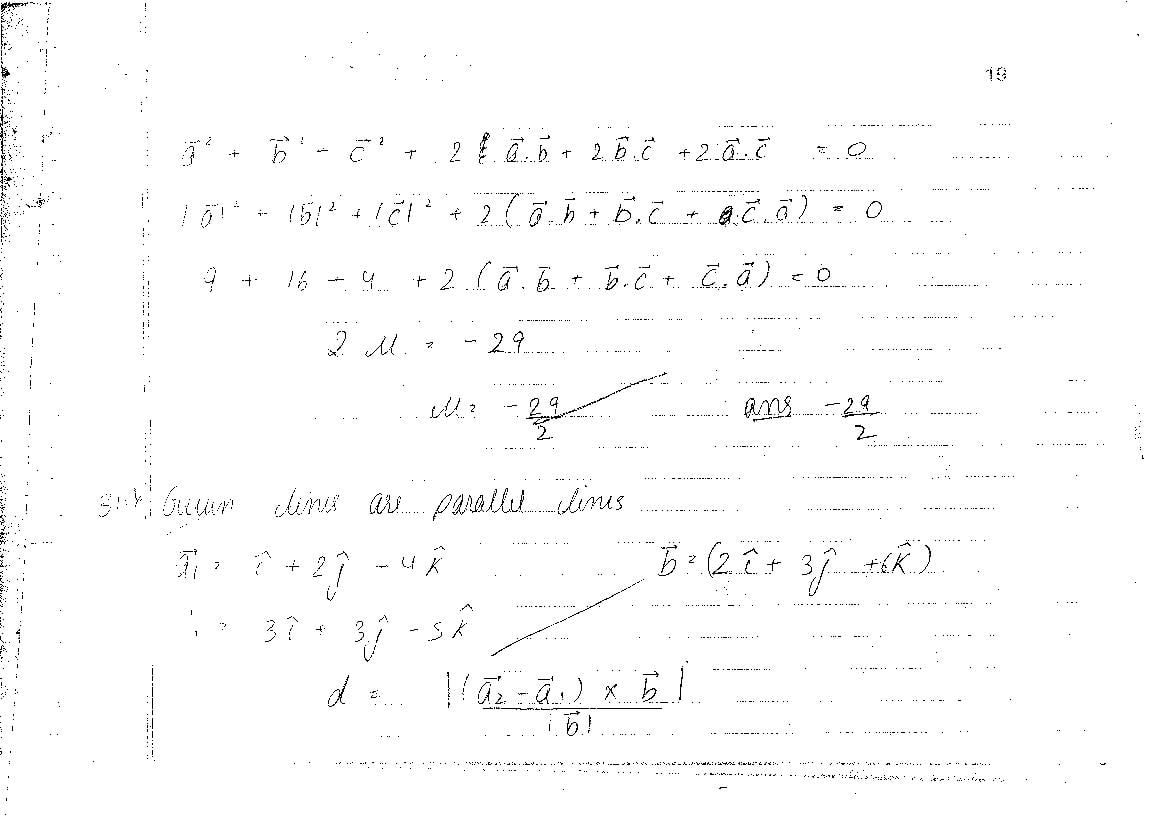 19
a⃗² + b⃗² - c⃗² + 2 a⃗.b⃗ + 2 b⃗.c⃗ + 2 a⃗.c⃗ = 0
|a⃗|² - |b⃗|² + |c⃗|² + 2 ( a⃗.b⃗ + b⃗.c⃗ + c⃗.a⃗ ) = 0
9 + 16 - 4 + 2 ( a⃗.b⃗ + b⃗.c⃗ + c⃗.a⃗ ) = 0
2 M = - 29
M = -29/2 ans -29/2
Given lines are parallel lines
a⃗₁ = î + 2ĵ - 4k̂ b⃗ = (2î + 3ĵ + 6k̂)
= 3î + 3ĵ - 5k̂
d = |(a⃗₂ - a⃗₁) × b⃗| / |b⃗|